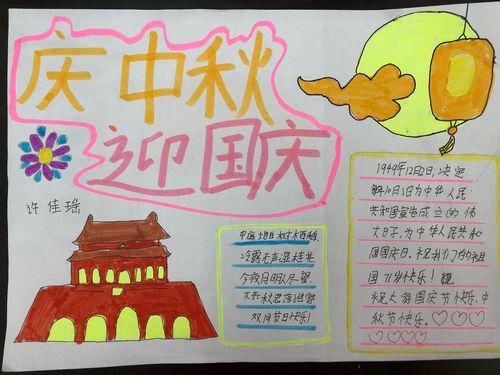 庆中秋
迎国庆
许佳瑶
中庭地白树栖鸦
冷露无声湿桂花
今夜月明人尽望
不知秋思落谁家
双月节日快乐!
1949年12月2日,决定
每年10月1日为中华人民
共和国宣告成立的伟
大日子,为中华人民共和
国国庆日。祝我们的祖
国71岁快乐!
祝大家国庆节快乐,中
秋节快乐。